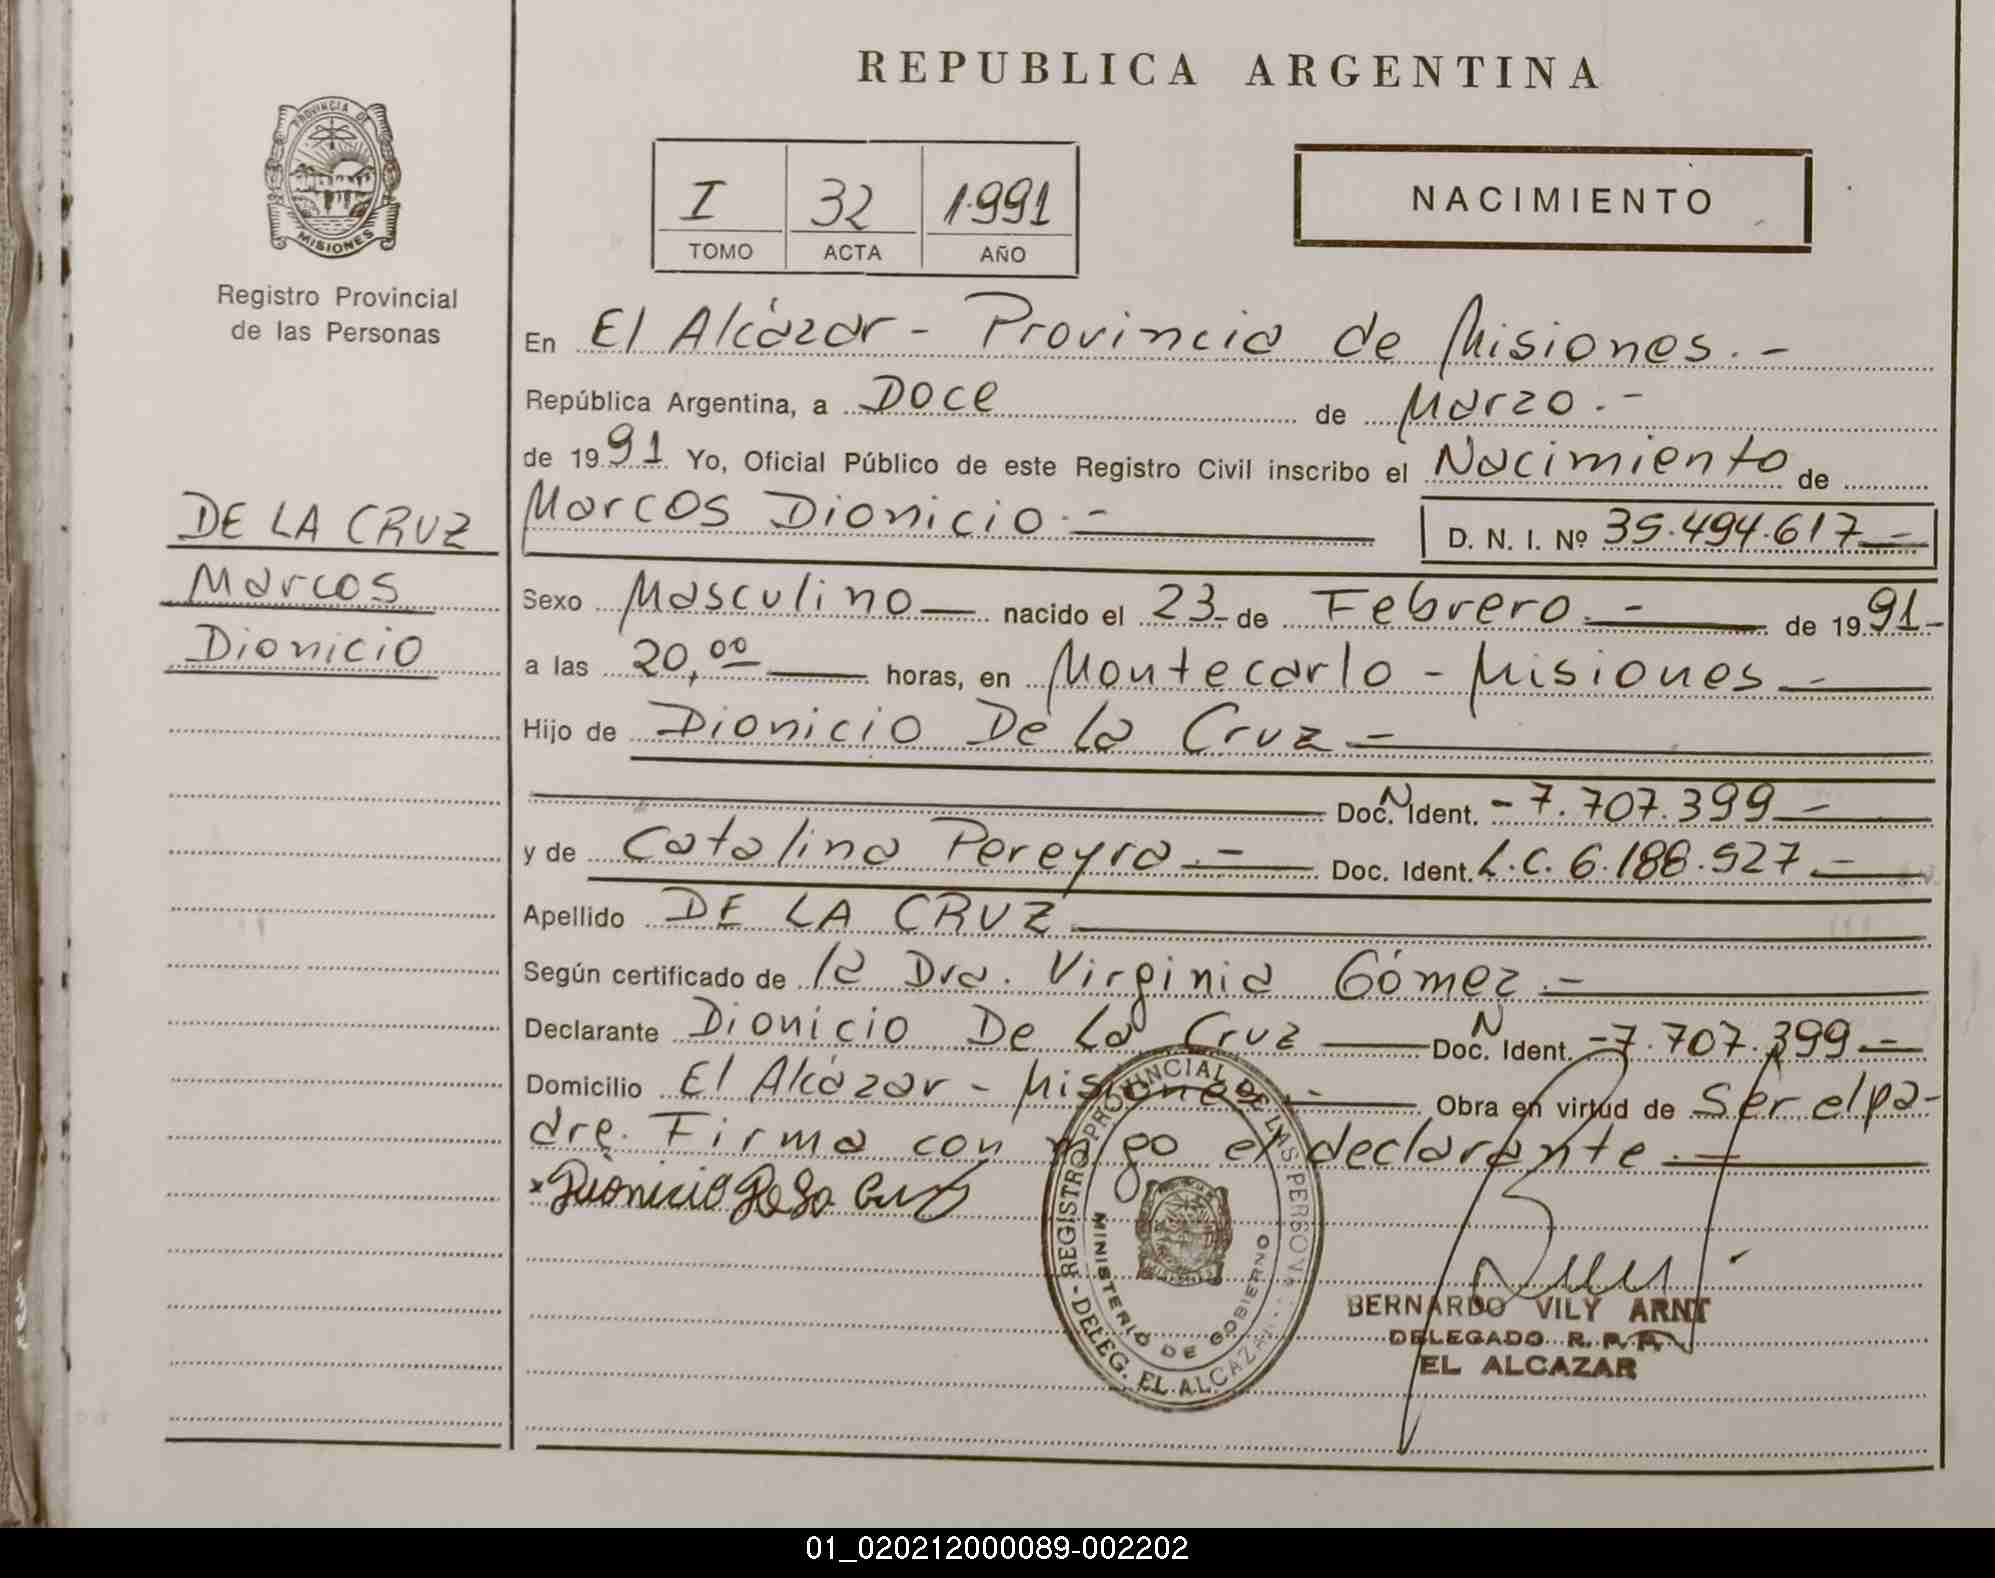 REPUBLICA ARGENTINA
PROVINCIA DE
MISIONES
Registro Provincial
de las Personas
I 32 1.991
TOMO ACTA AÑO
NACIMIENTO
DE LA CRUZ
Marcos
Dionicio
En El Alcázar - Provincia de Misiones. -
República Argentina, a Doce de Marzo. -
de 1991 Yo, Oficial Público de este Registro Civil inscribo el Nacimiento de
Marcos Dionicio. - D. N. I. Nº 35.494.617 -
Sexo Masculino nacido el 23- de Febrero. - de 1991-
a las 20,00 horas, en Montecarlo - Misiones -
Hijo de Dionicio De La Cruz -
Doc. N Ident. - 7.707.399 -
y de Catalina Pereyra. - Doc. Ident. L.C. 6.188.527 -
Apellido DE LA CRUZ
Según certificado de la Dra. Virginia Gómez. -
Declarante Dionicio De La Cruz Doc. N Ident. -7.707.399 -
Domicilio El Alcázar - Misiones - Obra en virtud de Ser el pa-
dre. Firma con migo el declarante. -
x Dionicio De La Cruz
REGISTRO PROVINCIAL DE LAS PERSONAS
MINISTERIO DE GOBIERNO
- DELEG. EL ALCAZAR
BERNARDO VILY ARNT
DELEGADO R. P. P.
EL ALCAZAR
01_020212000089-002202